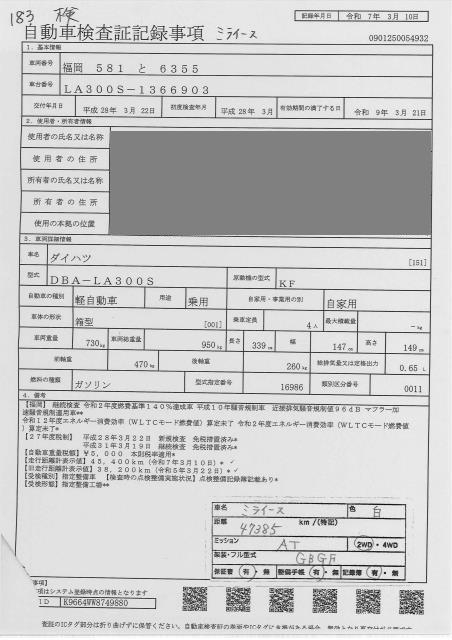 183 検
記録年月日 令和 7年 3月 10日
自動車検査証記録事項 ミライース
0901250054932
1. 基本情報
車両番号 福岡 581 と 6355
車台番号 LA300S-1366903
交付年月日 平成 28年 3月 22日 初度検査年月 平成 28年 3月 有効期間の満了する日 令和 9年 3月 21日
2. 使用者・所有者情報
使用者の氏名又は名称
使用者の住所
所有者の氏名又は名称
所有者の住所
使用の本拠の位置
3. 車両詳細情報
車名 ダイハツ [151]
型式 DBA-LA300S 原動機の型式 KF
自動車の種別 軽自動車 用途 乗用 自家用・事業用の別 自家用
車体の形状 箱型 [001] 乗車定員 4人 最大積載量 -kg
車両重量 730kg 車両総重量 950kg 長さ 339cm 幅 147cm 高さ 149cm
前軸重 470kg 後軸重 260kg 総排気量又は定格出力 0.65 L
燃料の種類 ガソリン 型式指定番号 16986 類別区分番号 0011
4. 備考
【福岡】 継続検査 令和2年度燃費基準140%達成車 平成10年騒音規制車 近接排気騒音規制値96dB マフラー加
速騒音規制適用車**
令和12年度エネルギー消費効率(WLTCモード燃費値)算定未了 令和2年度エネルギー消費効率(WLTCモード燃費値
)算定未了*
【27年度税制】 平成28年3月22日 新規検査 免税措置済み*
平成31年3月19日 継続検査 免税措置済み*
【自動車重量税額】¥5,000 本則税率適用*
【走行距離計表示値】45,400km(令和7年3月10日)*
【旧走行距離計表示値】38,200km(令和5年3月22日)*
【受検種別】指定整備車 【検査時の点検整備実施状況】点検整備記録簿記載あり*
【受検形態】指定整備工場**
車名 ミライース 色 白
距離 47385 km/(特記)
ミッション AT 2WD・4WD
架装・フル型式 GBGF
保証書 有・無 整備手帳 有・無 記録簿 有・無
事項)
項はシステム登録時点の情報となります
ID K9664WW8749880
査証のICタグ部分は折り曲げずに保管ください。